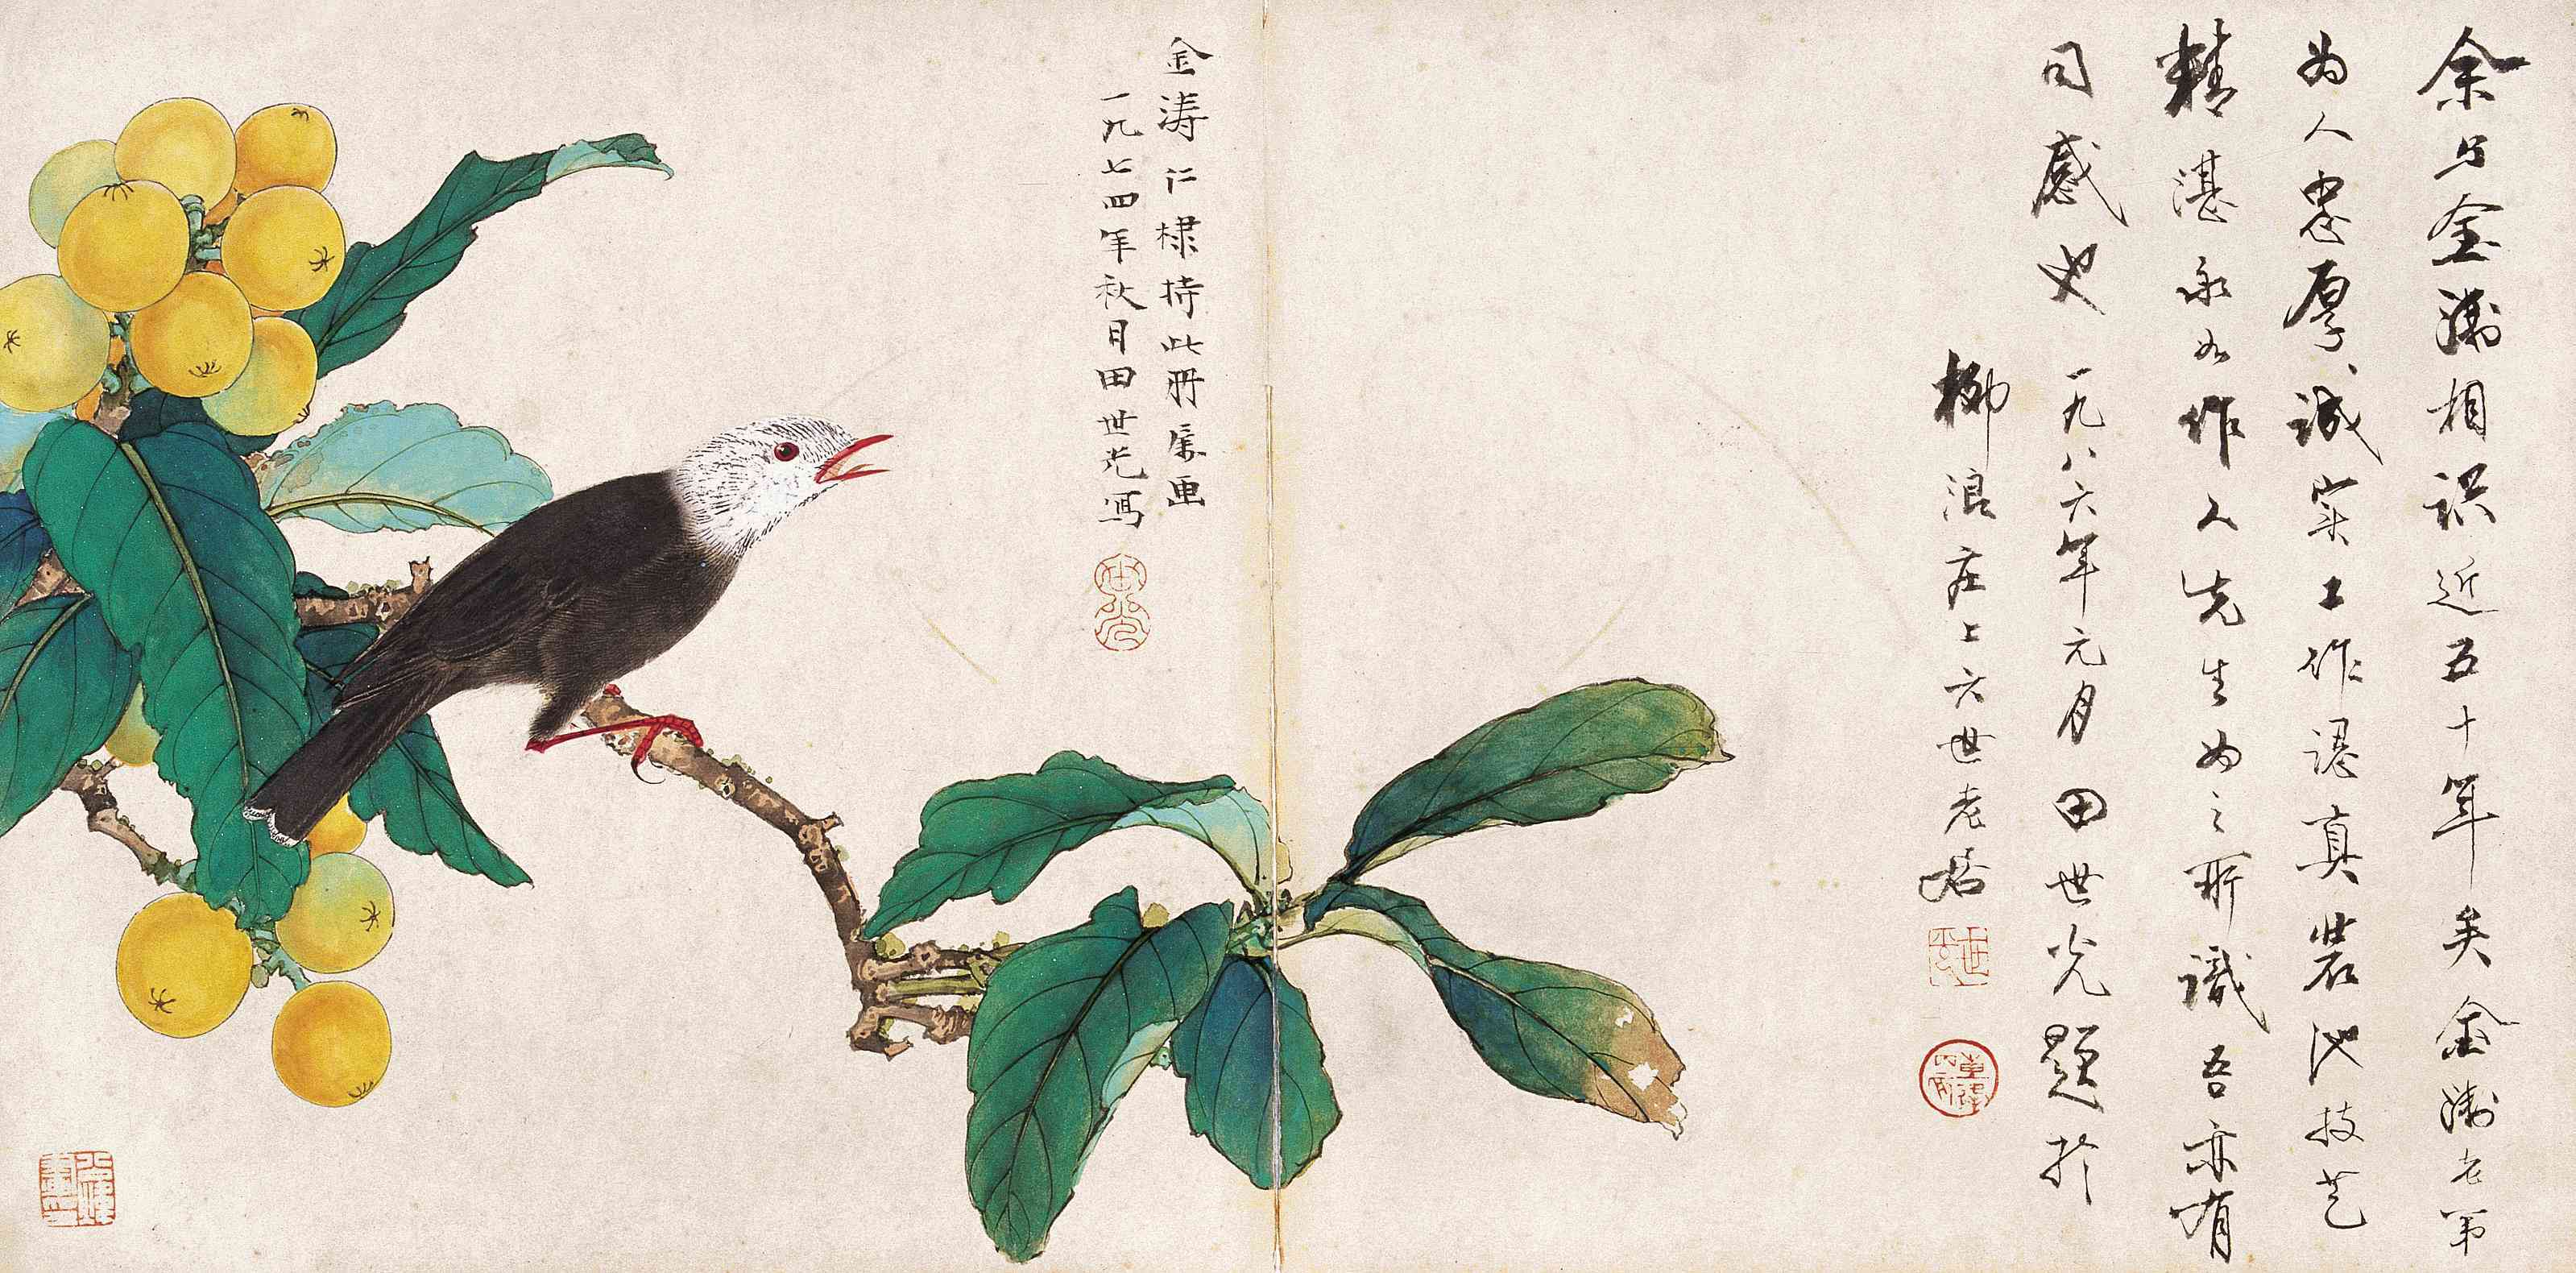 余与金涛相识近五十年矣金涛老弟
为人忠厚、诚实工作认真装池技艺
精湛永如作人先生为之所識吾亦有
同感也一九八六年元月田世光题於
柳浪庄上六世老
金涛仁棣持此册属画
一九七四年秋月田世光写
世光